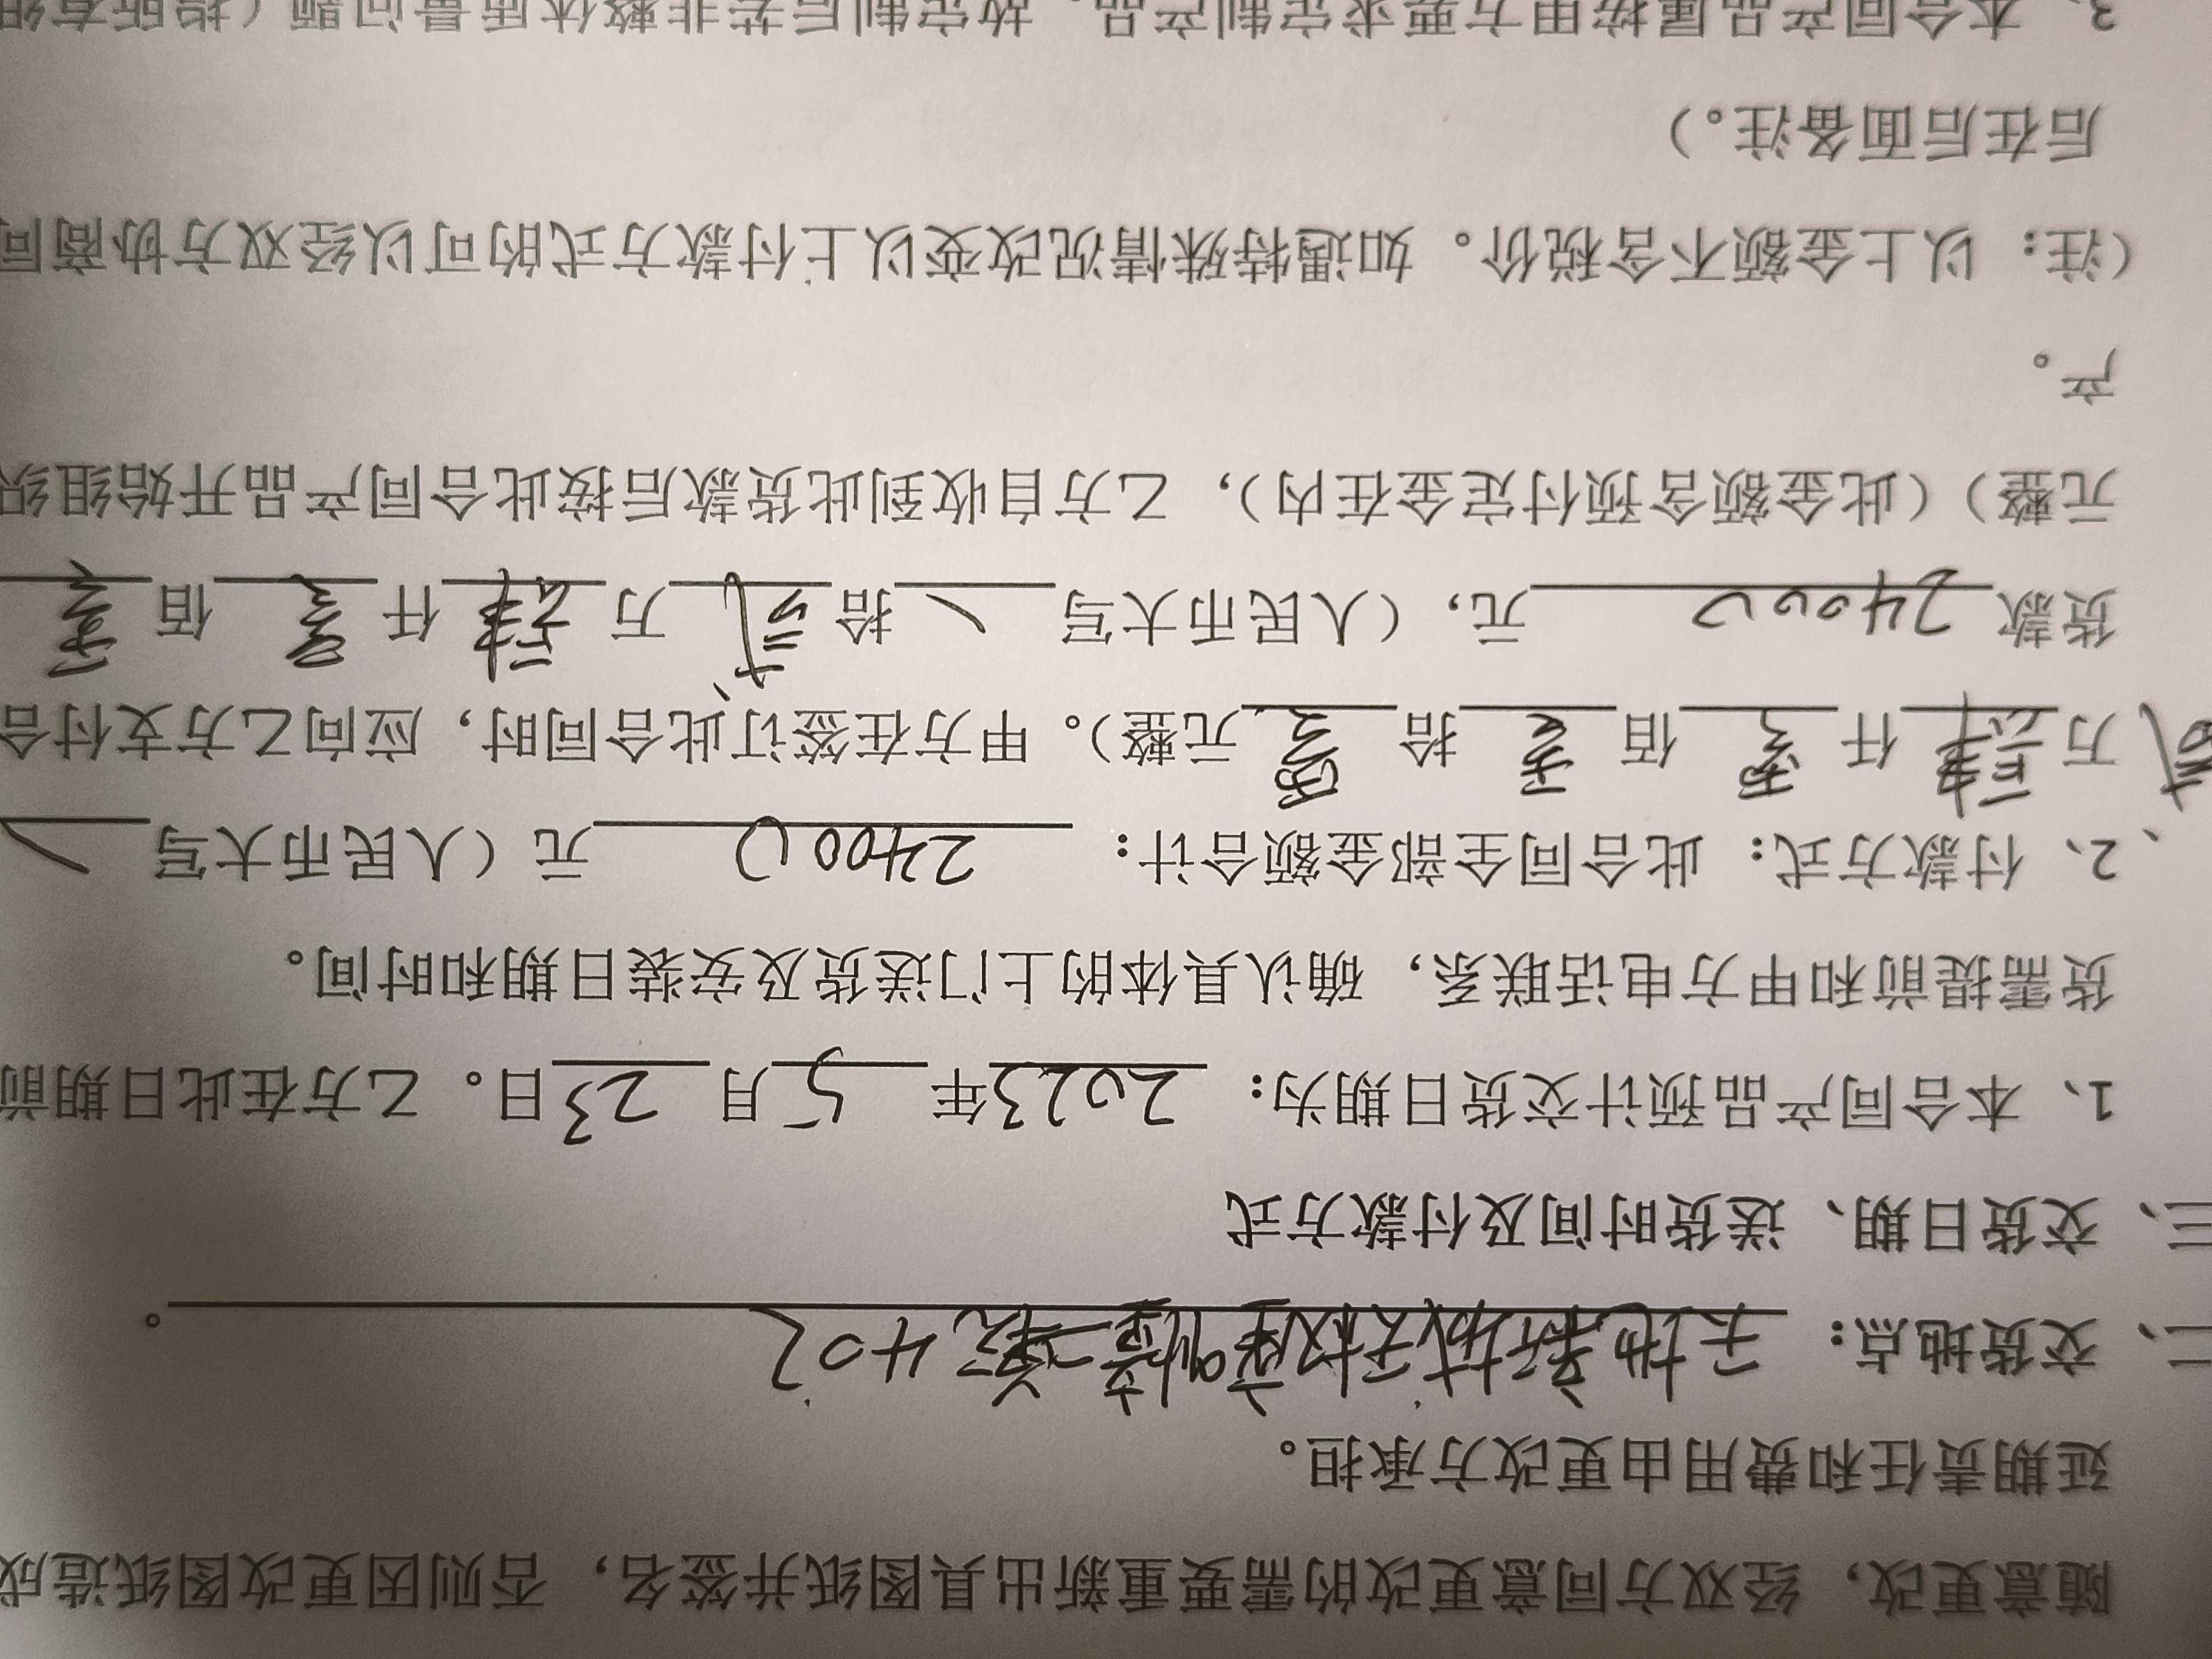 随意更改，经双方同意更改的需要重新出具图纸并签名，否则因更改图纸造成
延期责任和费用由更改方承担。
二、交货地点：天地新城天枢座 402。
三、交货日期、送货时间及付款方式
1、本合同产品预计交货日期为：2023年5月23日。乙方在此日期前
货需提前和甲方电话联系，确认具体的上门送货及安装日期和时间。
2、付款方式：此合同全部金额合计：24000元（人民币大写\
贰万肆仟零佰零拾零元整）。甲方在签订此合同时，应向乙方支付合
货款24000元，（人民币大写\拾贰万肆仟零佰零
元整）（此金额含预付定金在内），乙方自收到此货款后按此合同产品开始组织
产。
（注：以上金额不含税价。如遇特殊情况改变以上付款方式的可以经双方协商同
后在后面备注。）
3、本合同产品属按甲方要求定制产品，故定制后若非整体质量问题（指所有组